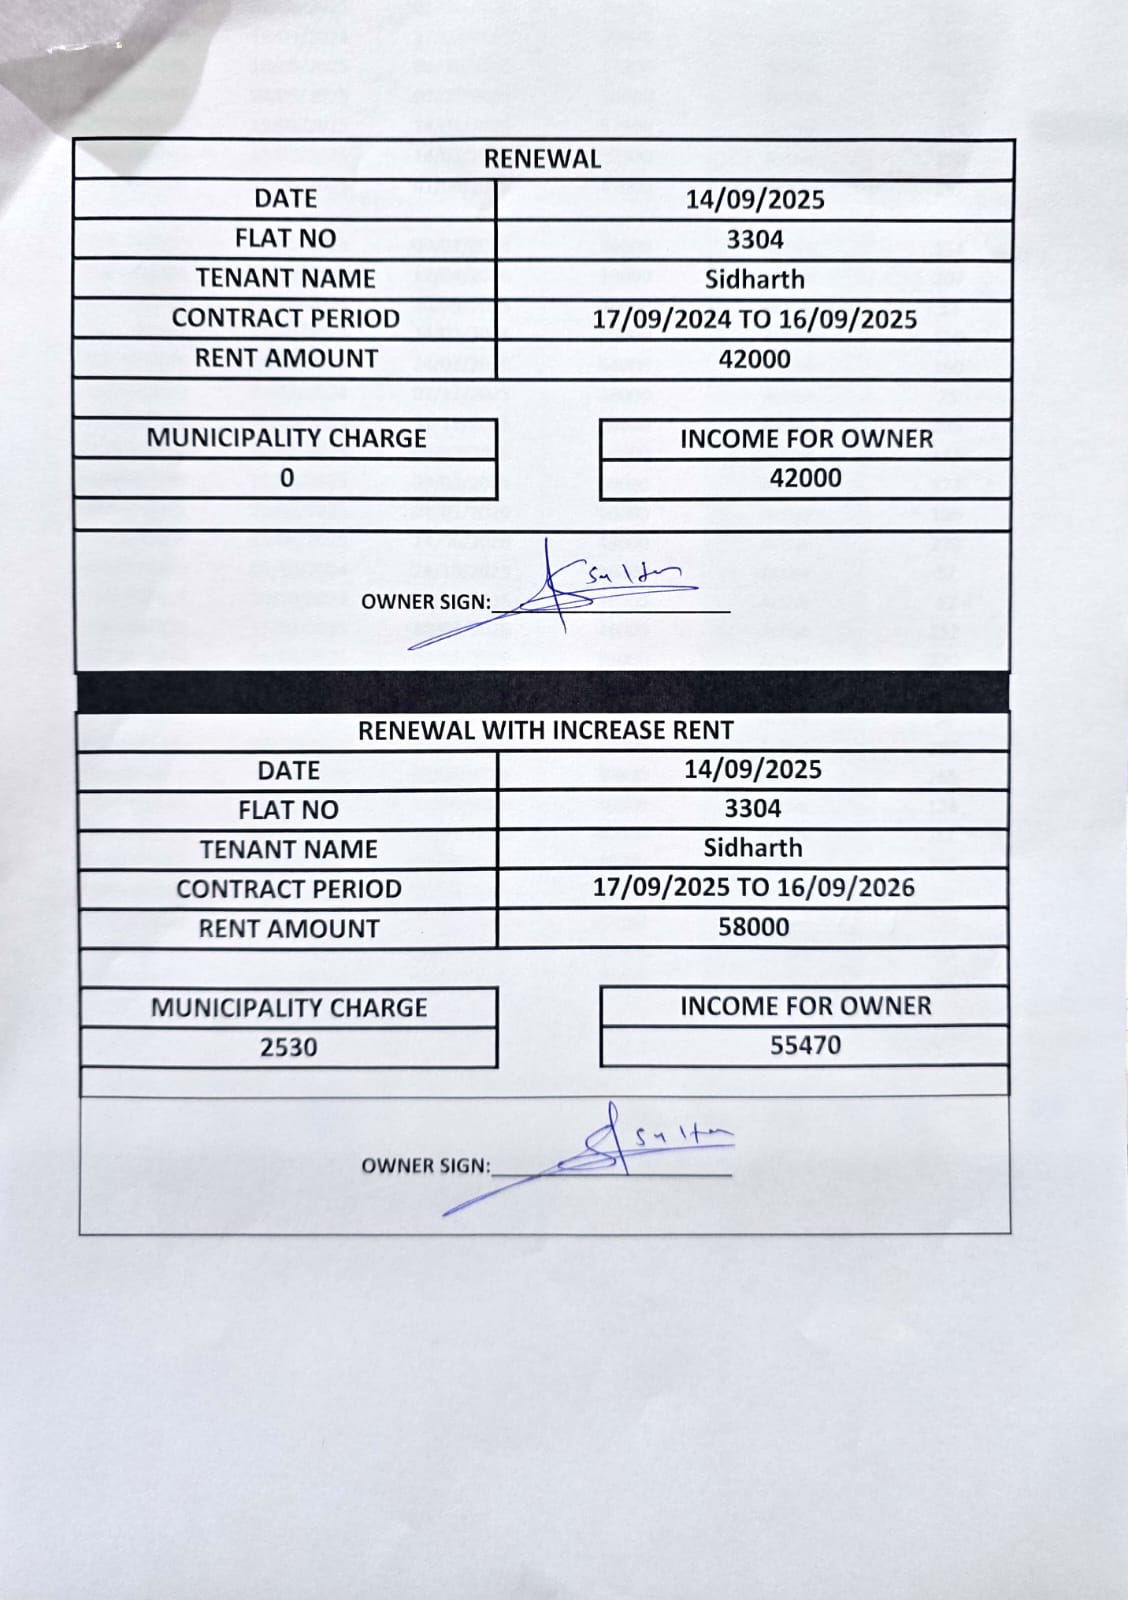 RENEWAL
DATE 14/09/2025
FLAT NO 3304
TENANT NAME Sidharth
CONTRACT PERIOD 17/09/2024 TO 16/09/2025
RENT AMOUNT 42000
MUNICIPALITY CHARGE INCOME FOR OWNER
0 42000
OWNER SIGN: sultan
RENEWAL WITH INCREASE RENT
DATE 14/09/2025
FLAT NO 3304
TENANT NAME Sidharth
CONTRACT PERIOD 17/09/2025 TO 16/09/2026
RENT AMOUNT 58000
MUNICIPALITY CHARGE INCOME FOR OWNER
2530 55470
OWNER SIGN: sultan